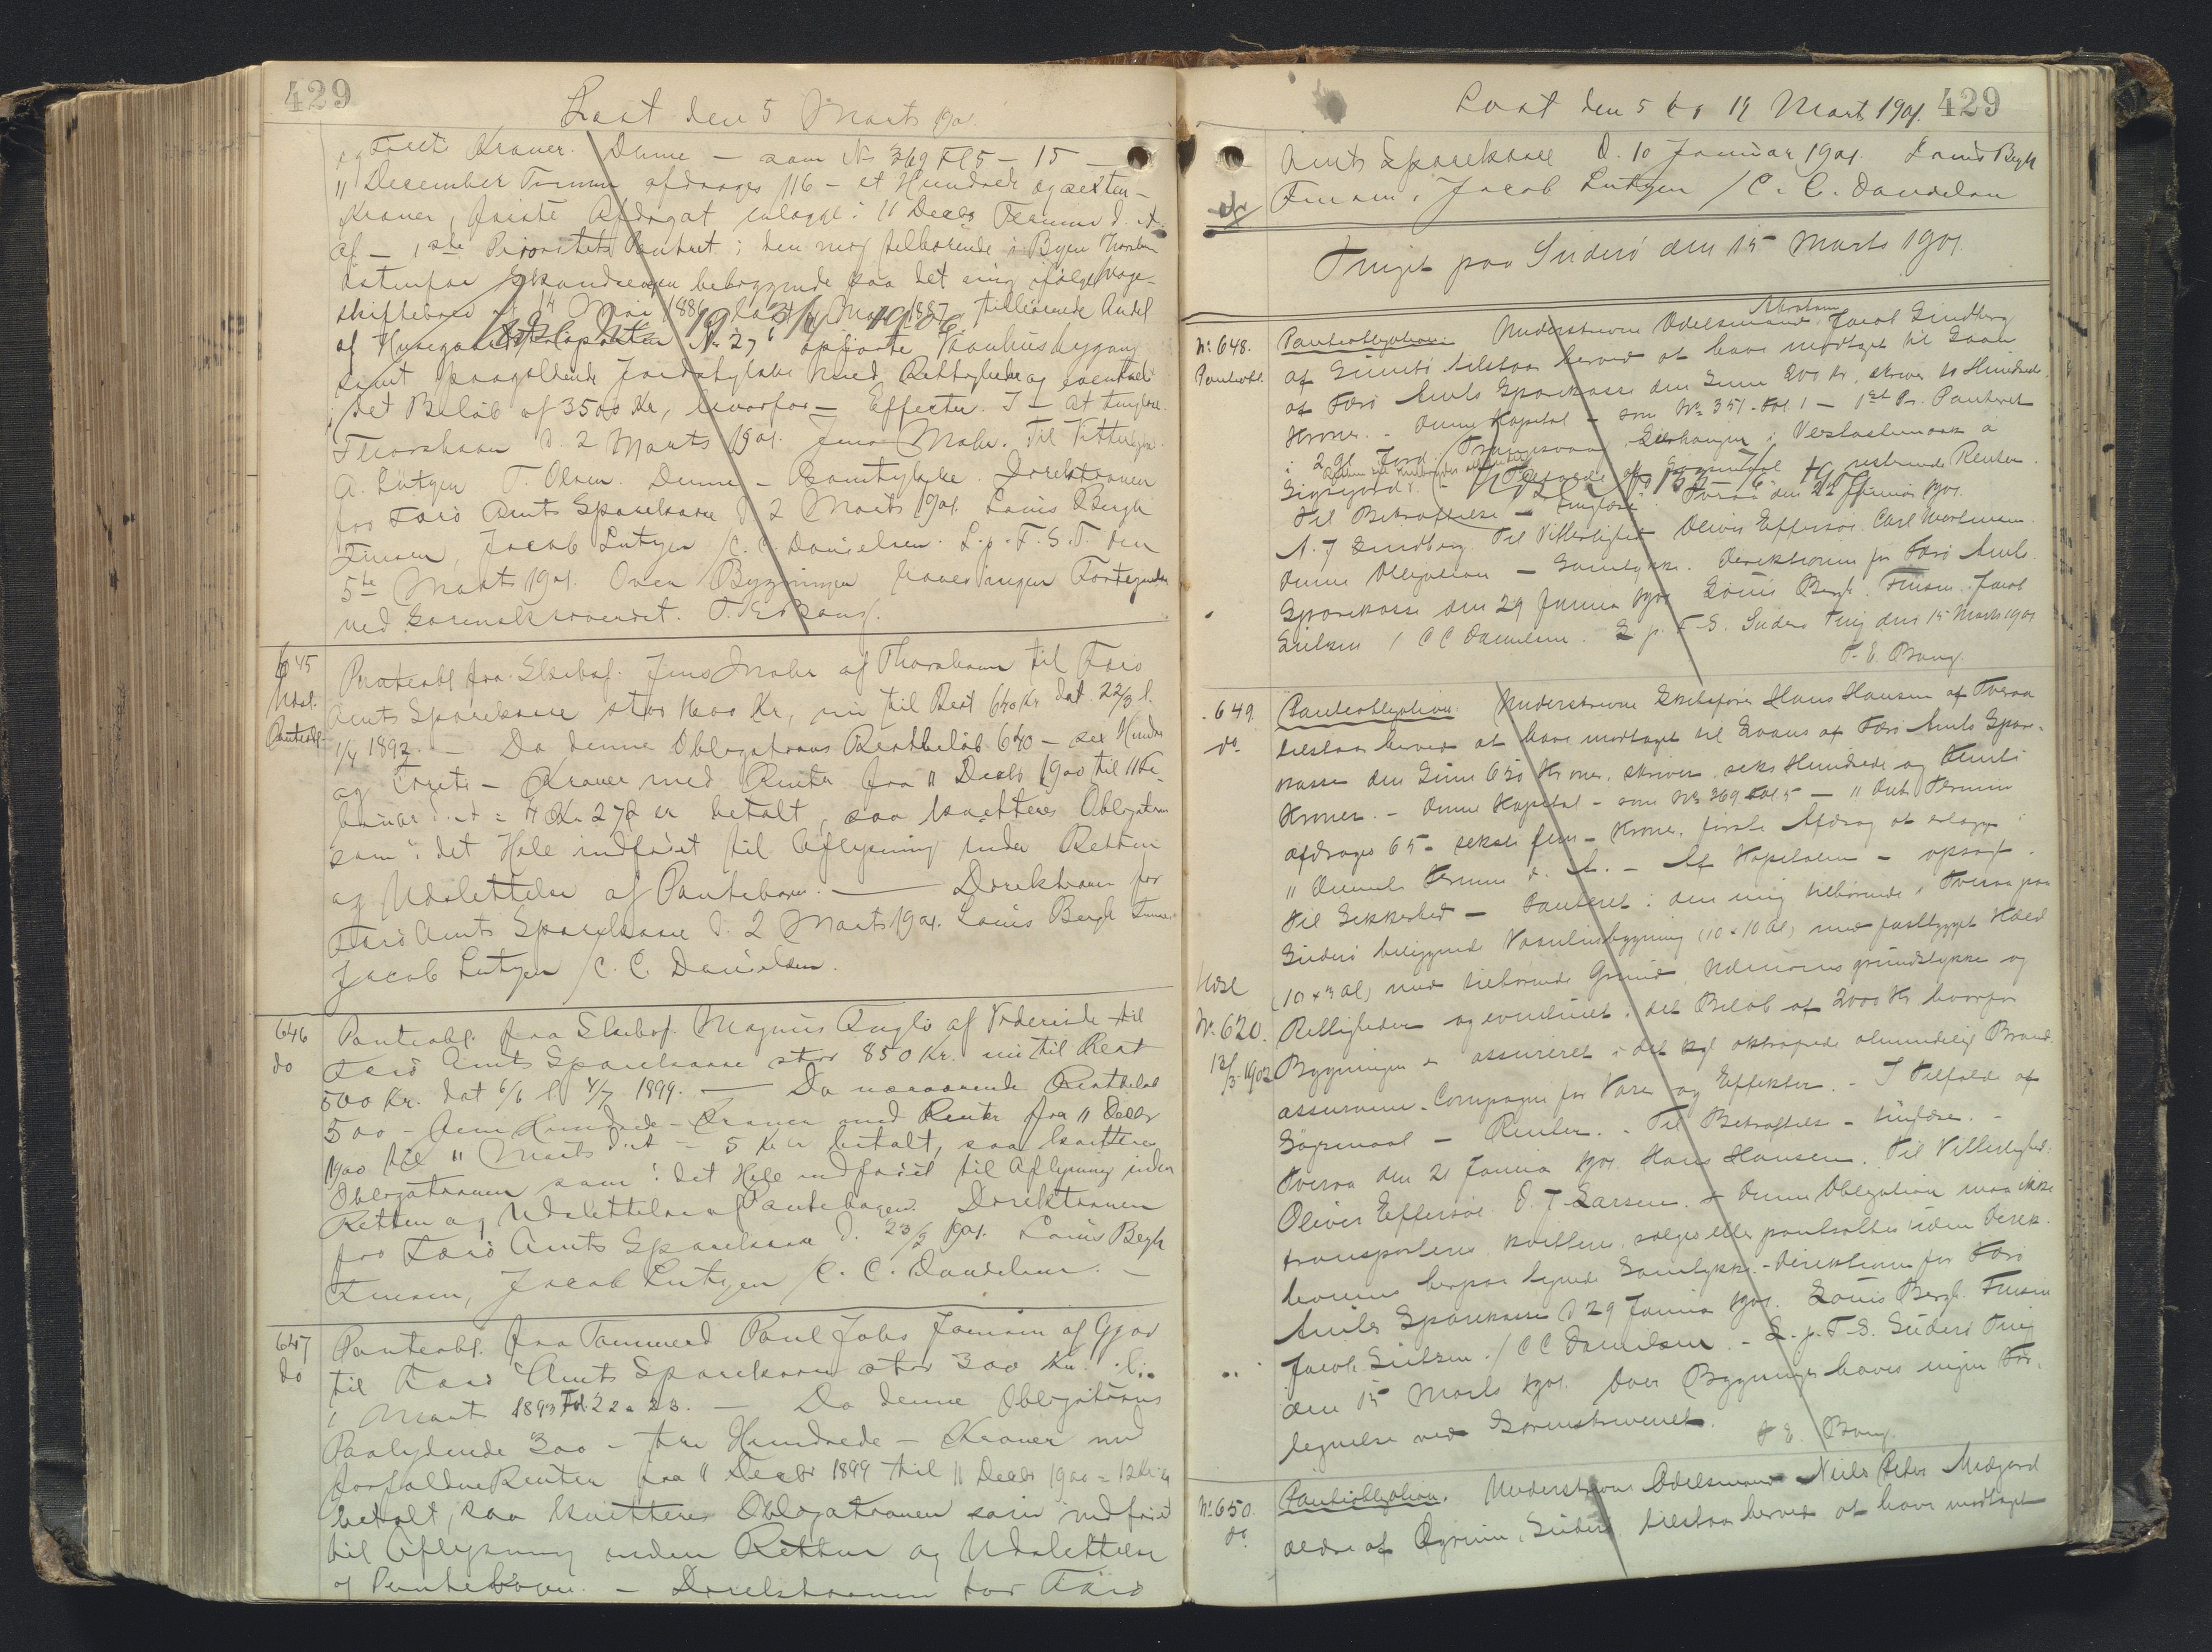 429
Læst den 5 Marts 1901.
og Fireti Kroner. Denne — som No 369 Fol 5 — 15 —
11 December Termin afdrages 116 — et Hundrede og sexten —
Kroner, første Afdraget erlagt i 11 Decbr Termin d. A.
af — 1ste Prioritets Panteret i den mig tilhørende i Byen Thorshavn
beliggende paa det mig ifølge Mage-
skiftebrev 14 Mai 1886 1887 tilhørende Andel
af No 27 opførte Vaaningsbygning
samt paagældende Jordstykke med Rettigheder og eventuelt
i det Beløb af 3500 Kr, hvorfor — Effecter. I — at tinglæse.
Thorshavn d. 2 Marts 1901. Jens Mohr. Til Vitterlighed
A. Lützen T. Olsen. Denne — Samtykke. Direktionen
for Færø Amts Sparekasse d 2 Marts 1901. Louis Bergh
Finsen, Jacob Lützen / C. C. Danielsen. L. p. F. S. T. den
5te Marts 1901. Over Bygningen haves ingen Fortegnelse
ved Sorenskriveriet. T. E. Bang.
645
Udsl.
Panteobl.
Panteobl fra Skibsf. Jens Mohr af Thorshavn til Færø
Amts Sparekasse stor 1600 Kr, nu til Rest 640 Kr dat. 22/3 l.
1/4 1892. — Da denne Obligations Restbeløb 640 — sex Hundre
og Fireti — Kroner med Renter fra 11 Decbr 1900 til 11 Fe-
bruar d. A = 4 Kr 27 Ø er betalt, saa kvitteres Obligation
som i det Hele indfriet til Aflysning inden Retten
og Udslettelse af Pantebogen. — Direktionen for
Færø Amts Sparekasse d. 2 Marts 1901. Louis Bergh Finsen
Jacob Lützen / C. C. Danielsen.
646
do
Panteobl. fra Skibsf. Magnus af Videreide til
Færø Amts Sparekasse stor 850 Kr. nu til Rest
500 Kr. dat 6/6 l 4/7 1899. — Da nærværende Restbeløb
500 — fem Hundrede — Kroner med Renter fra 11 Decbr
1900 til 11 Marts d. A — 5 Kr er betalt, saa kvitteres
Obligationen som i det Hele indfriet til Aflysning inden
Retten og Udslettelse af Pantebogen. Direktionen
for Færø Amts Sparekasse d. 23/2 1901. Louis Bergh
Finsen, Jacob Lützen / C. C. Danielsen. —
647
do
Panteobl. fra Tømmerd Poul Johs Joensen af Gjov
til Færø Amts Sparekasse stor 300 Kr. l.
1 Mart 1893 Fol. 22 a 23. — Da denne Obligations
Paalydende 300 — tre Hundrede — Kroner med
forfaldne Renter fra 11 Decbr 1899 til 11 Decbr 1900 = 12 Kr er
betalt, saa kvitteres Obligationen som indfriet
til Aflysning inden Retten og Udslettelse
af Pantebogen. — Direktionen for Færø
Læst den 5 og 19 Marts 1901. 429
Amts Sparekasse d. 10 Januar 1901. Louis Bergh
Finsen, Jacob Lützen / C. C. Danielsen
Tinget paa Suderø den 15 Marts 1901
No 648.
Panteobl.
Panteobligation. Understrevne Odelsmand Abraham Jacob Lindberg
af Sumbø tilstaar herved at have modtaget til Laan
af Færø Amts Sparekasse den Sum 200 Kr. skriver to Hundrede
Kroner. — Denne Kapital — som No 351 Fol. 1 — 1ste Pr. Panteret
i 2 gl. Jord Vestastemark a
Renter.
Til Bekræftelse — tinglæse. Tveraa den 22 Januar 1901.
A. J Lindberg. Til Vitterlighed Oliver Effersøe Carl Mortensen.
Denne Obligation — Samtykke. Direktionen for Færø Amts
Sparekasse den 29 Januar 1901 Louis Bergh. Finsen. Jacob
Lützen / C C Danielsen. L p. F. S. Suderø Ting den 15 Marts 1901
T. E. Bang.
649.
do.
Panteobligation. Understrevne Skibsfører Hans Hansen af Tveraa
tilstaar herved at have modtaget til Laans af Færø Amts Spare-
kasse den Sum 650 Kroner. skriver seks Hundrede og Femti
Kroner. — Denne Kapital — som No 369 Fol. 5 — 11 Decbr Termin
afdrages 65 — seksti fem — Kroner, første Afdrag at erlægge i
11 Decemb. Termin d. A. — Af Kapitalen — opsagt.
til Sikkerhed — Panteret i den mig tilhørende i Tveraa paa
Suderø beliggende Vaaningsbygning (10 x 10 al) med fastbygget Kold
(10 x 3 al) med tilhørende Grund Udmarks grundstykke og
Udsl
No 620.
12/3-1902
Rettigheder og eventuelt i det Beløb af 2000 Kr hvorfor
Bygningen er assureret i det kgl oktrojerede almindelige Brand-
assurance-Compagni for Vare og Effekter. — I Tilfælde af
Søgsmaal — Renter. — Til Bekræftelse — tinglæse. —
Tveraa den 21 Januar 1901. Hans Hansen. Til Vitterlighed:
Oliver Effersøe D. J Larsen. — Denne Obligation maa ikke
transporteres kvitteres sælges eller pantsættes uden Direk-
tionens herpaa tegnede Samtykke. — Direktionen for Færø
Amts Sparekasse d 29 Januar 1901. Louis Bergh. Finsen
Jacob Lützen. / C C Danielsen. — L. p. F. S. Suderø Ting
den 15 Marts 1901. Over Bygningen haves ingen For-
tegnelse ved Sorenskriveriet. T E. Bang.
No 650.
do.
Panteobligation. Understrevne Odelsmand Niels Peter Midjord
ældre af Øgrum, Suderø tilstaar herved at have modtaget